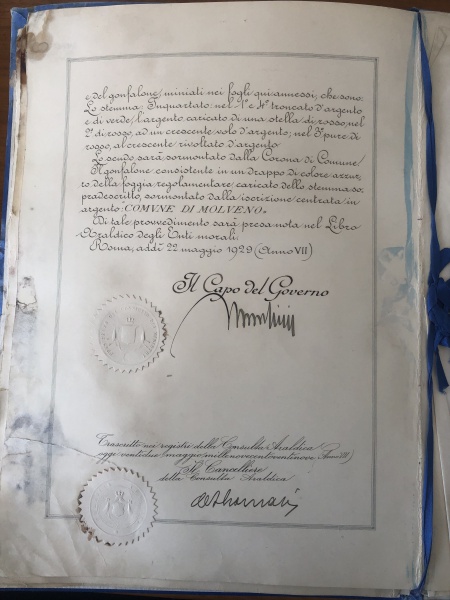 e del gonfalone, miniati nei fogli qui annessi, che sono:
Lo stemma: Inquartato: nel 1º e 4º troncato d'argento
e di verde, l'argento caricato di una stella di rosso; nel
2º di rosso, ad un crescente volo d'argento; nel 3º pure di
rosso, al crescente rivoltato d'argento
Lo scudo sarà sormontato dalla Corona di Comune.
Il gonfalone consistente in un drappo di colore azzur,
ro della foggia regolamentare caricato dello stemma so,
pradescritto, sormontato dalla iscrizione centrata in
argento: COMVNE DI MOLVENO.
Di tale provvedimento sarà presa nota nel Libro
Araldico degli Enti morali.
Roma, addì 22 maggio 1929 (Anno VII)
Il Capo del Governo
Mussolini
Trascritto nei registri della Consulta Araldica
oggi ventidue maggio millenovecentoventinove (Anno VII)
Il Cancelliere
della Consulta Araldica